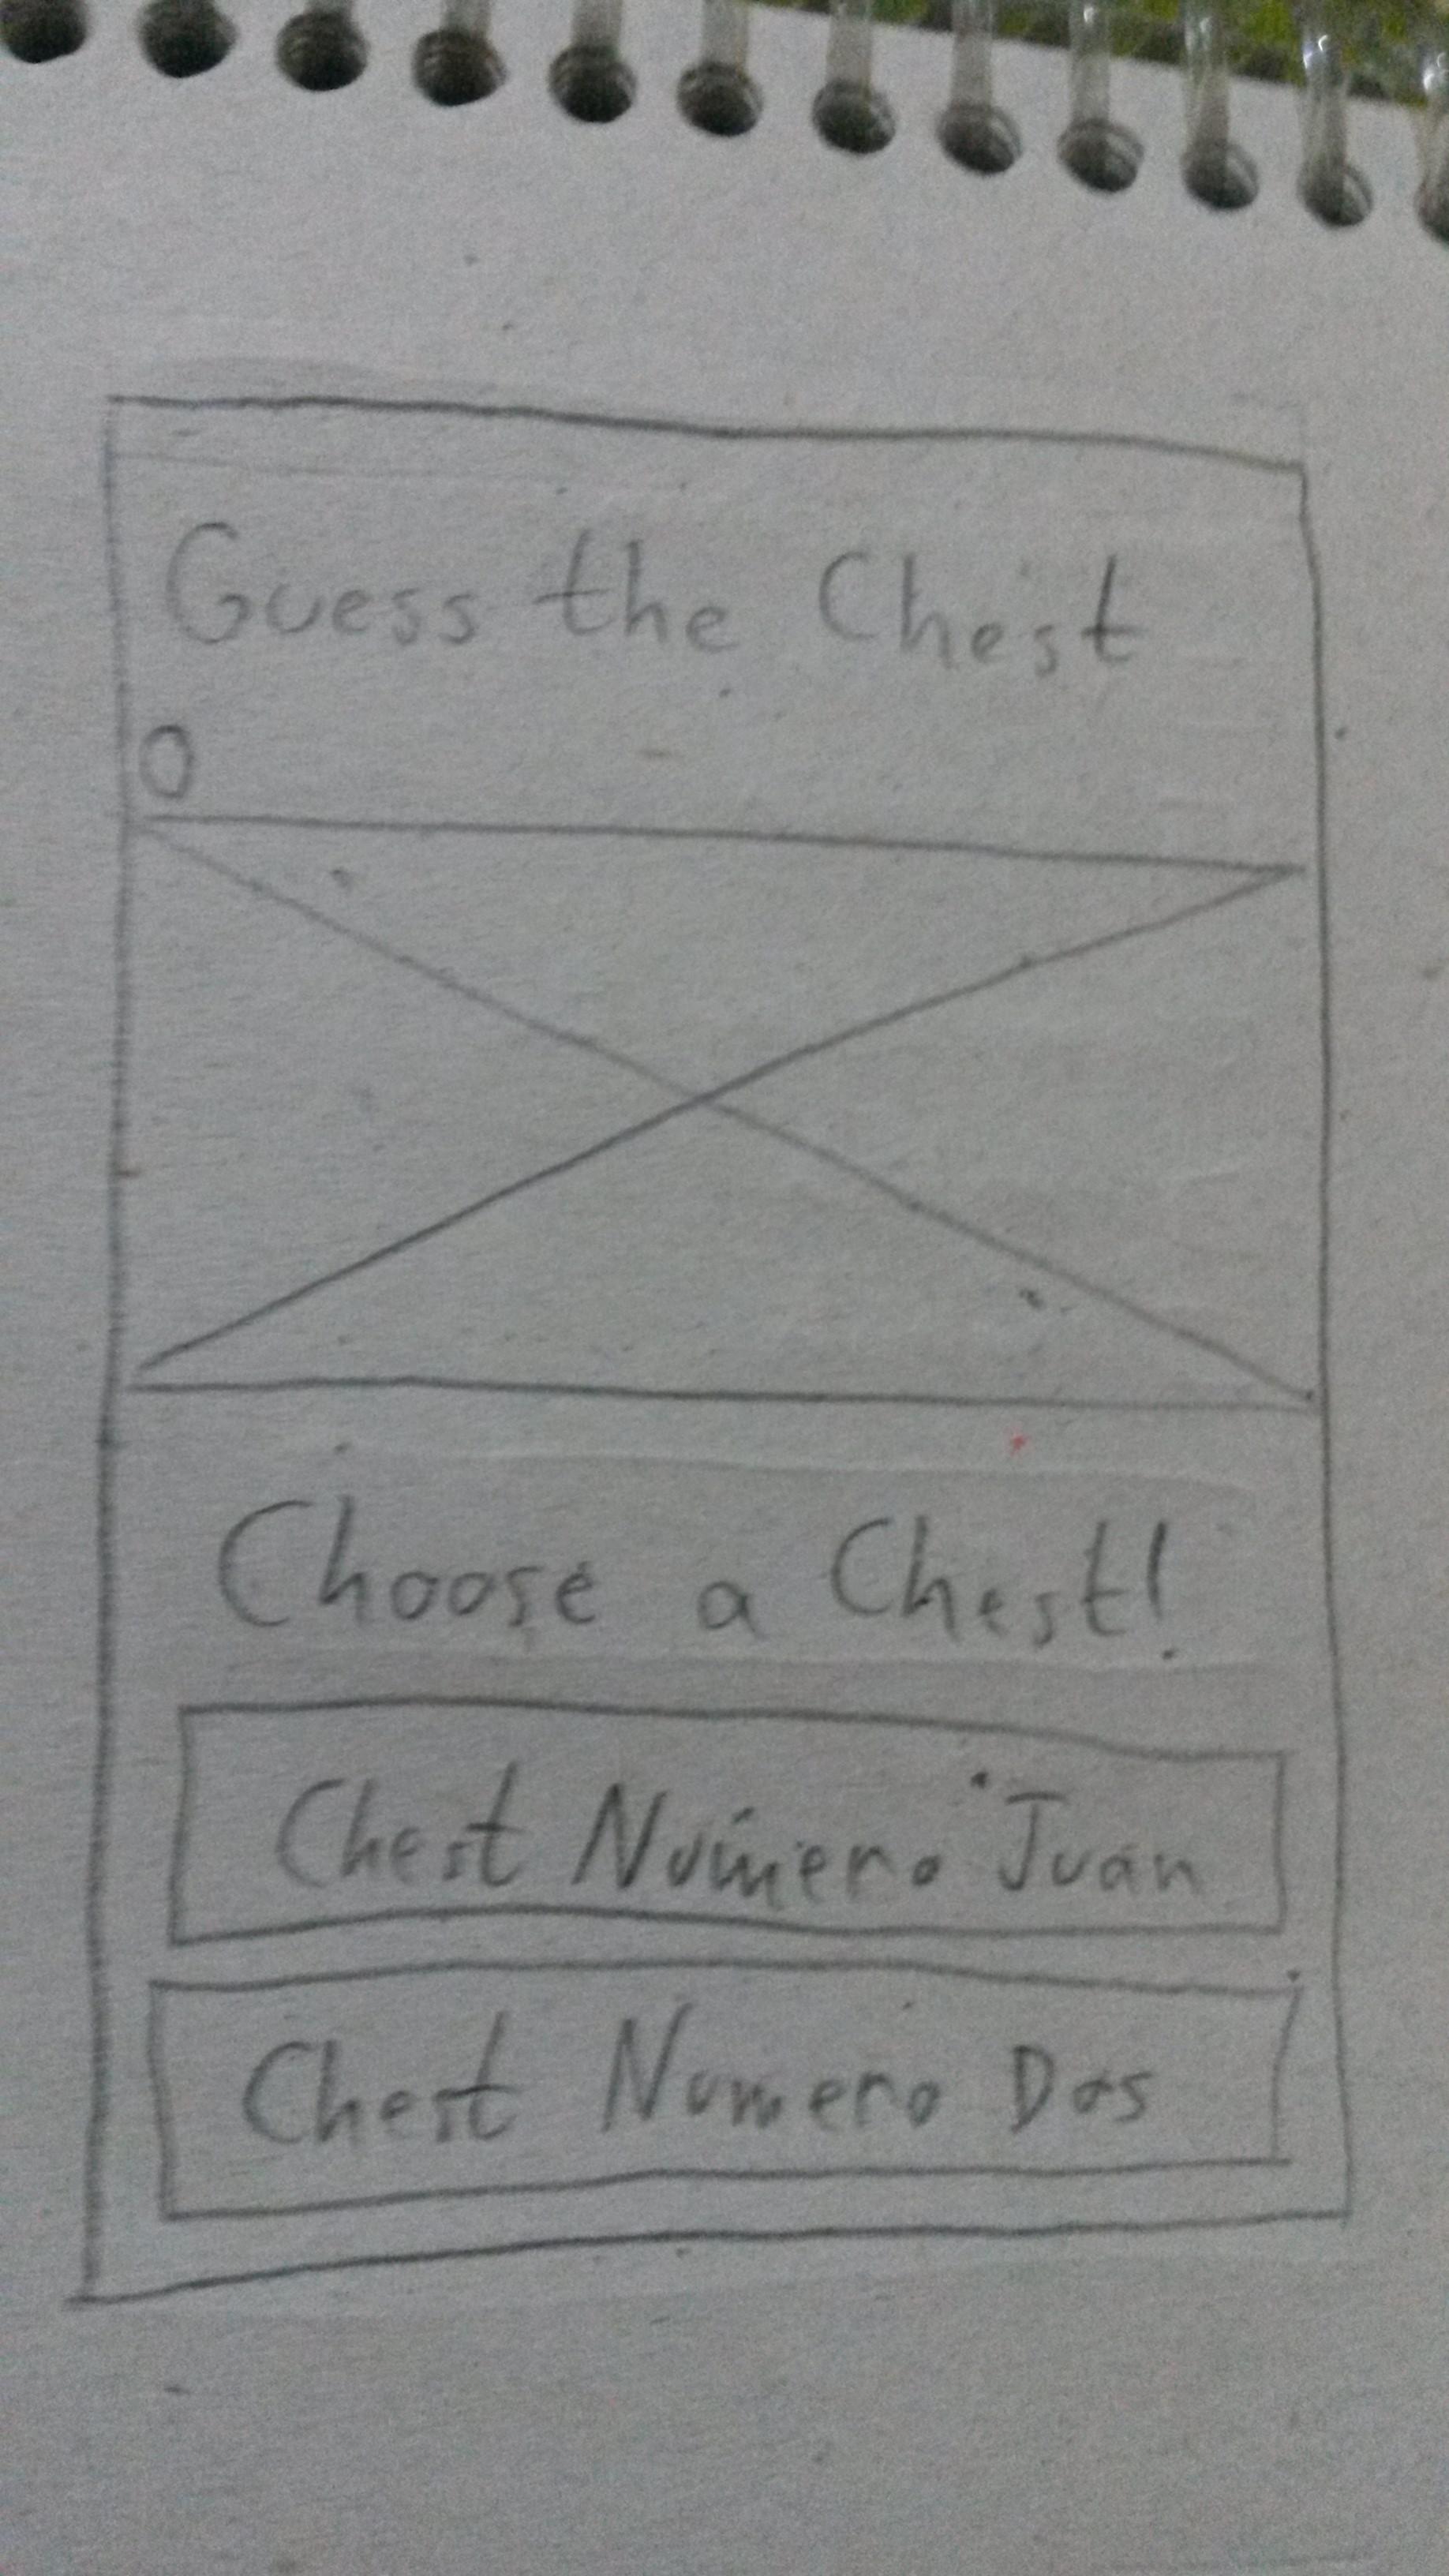 Guess the Chest
0
Choose a Chest!
Chest Número Juan
Chest Numero Dos